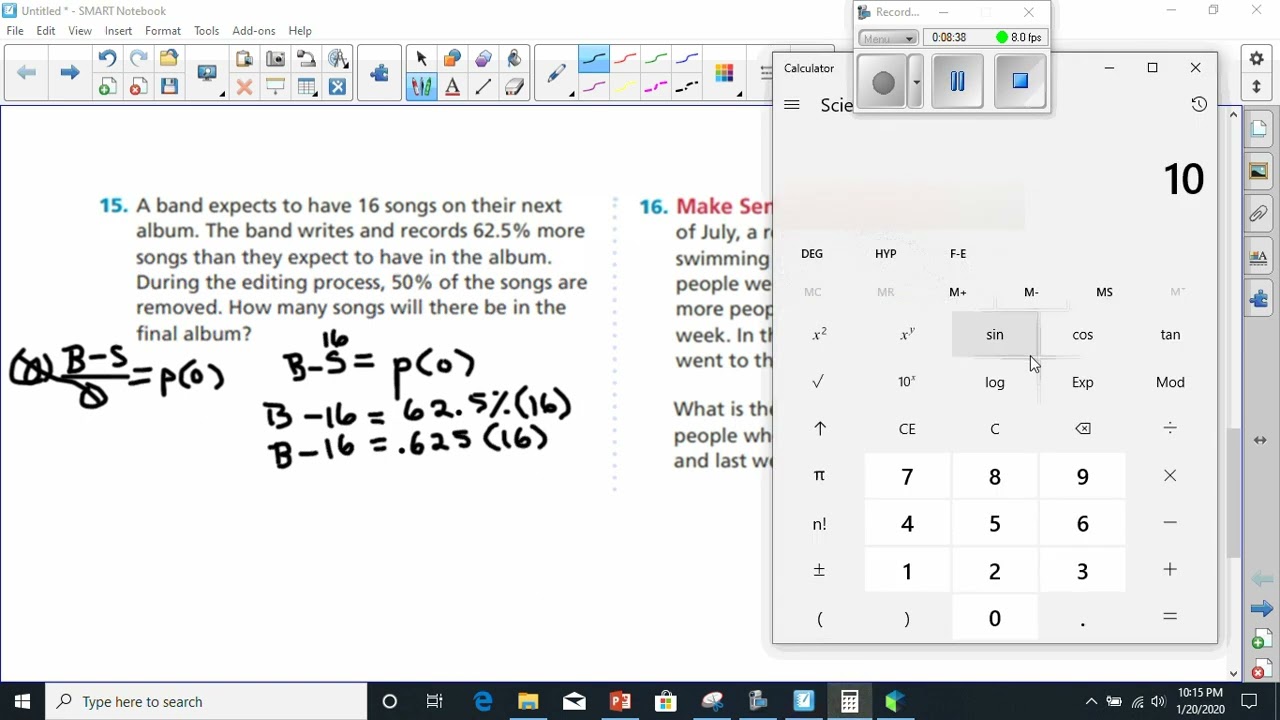 Untitled * - SMART Notebook
File Edit View Insert Format Tools Add-ons Help
Record...
Menu
0:08:38
8.0 fps
Calculator
Scie
10
DEG HYP F-E
MC MR M+ M- MS
x² xʸ sin cos tan
√ 10ˣ log Exp Mod
↑ CE C ⌫ ÷
π 7 8 9 ×
n! 4 5 6 −
± 1 2 3 +
( ) 0 . =
15. A band expects to have 16 songs on their next
album. The band writes and records 62.5% more
songs than they expect to have in the album.
During the editing process, 50% of the songs are
removed. How many songs will there be in the
final album?
B-S = p(0)
16
B-S = p(0)
B-16 = 62.5%(16)
B-16 = .625(16)
16. Make Sen
of July, a r
swimming
people we
more peop
week. In th
went to th
What is the
people wh
and last we
Type here to search
10:15 PM
1/20/2020